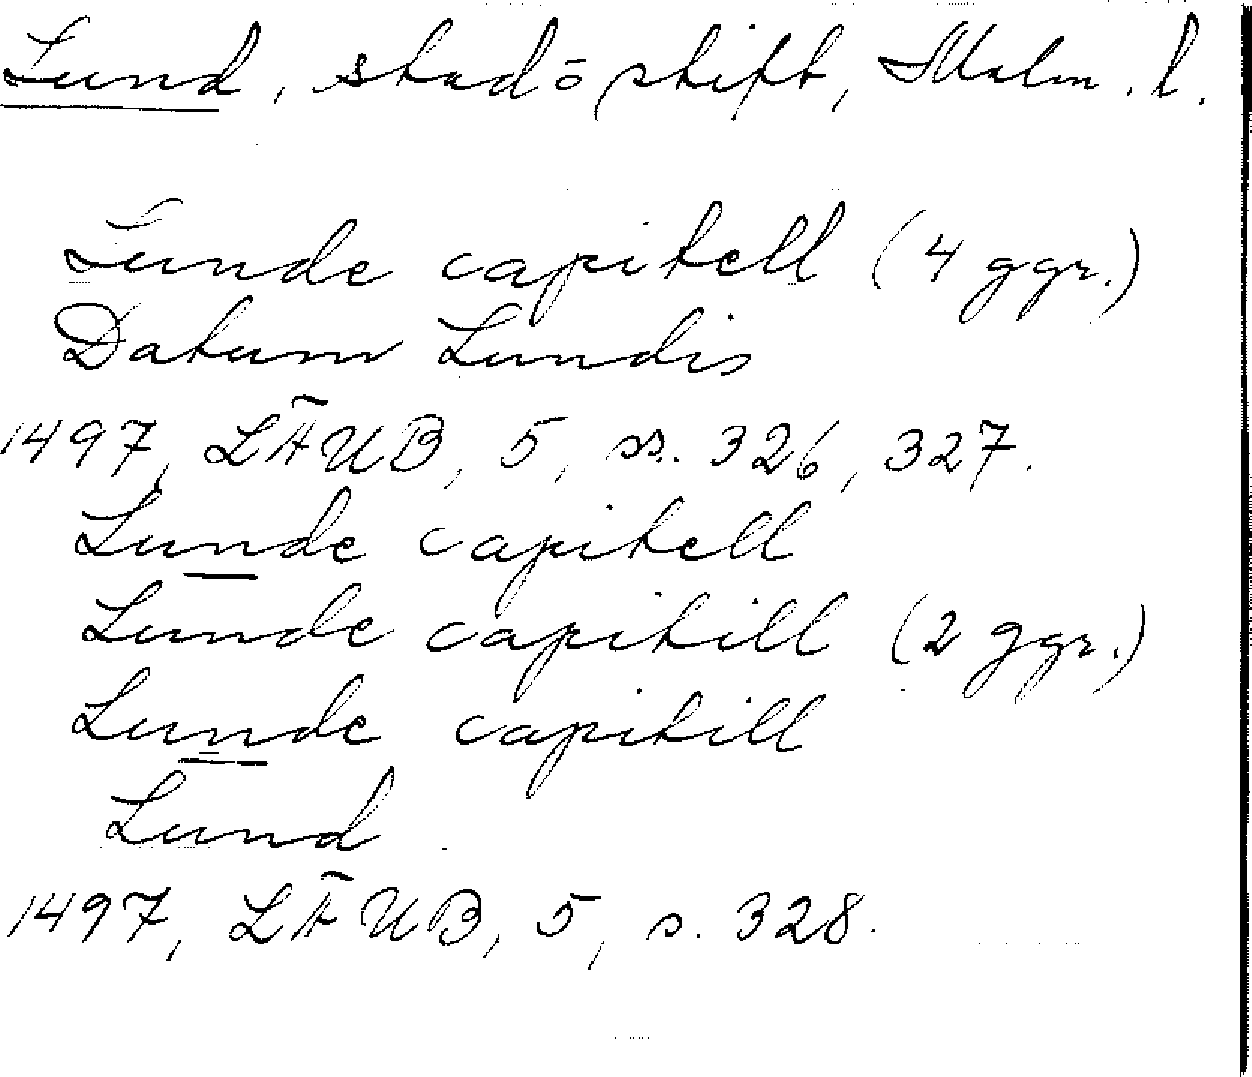 Lund, stad o stift, Malm. l.
Lunde capitell (4 ggr.)
Datum Lundis
1497, LÄUB, 5, ss. 326, 327.
Lunde capitell
Lunde capitill (2 ggr.)
Lunde capitill
Lund
1497, LÄUB, 5, s. 328.